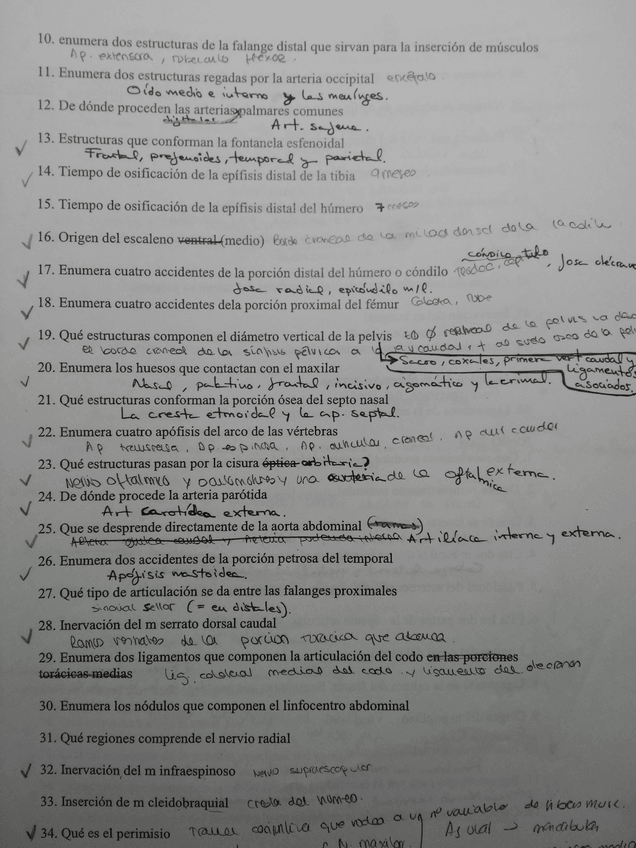 10. enumera dos estructuras de la falange distal que sirvan para la inserción de músculos
Ap. extensora, tubérculo flexor.
11. Enumera dos estructuras regadas por la arteria occipital encéfalo
Oído medio e interno y las meninges.
12. De dónde proceden las arterias palmares comunes
digitales
Art. safena.
13. Estructuras que conforman la fontanela esfenoidal
Frontal, presfenoides, temporal y parietal.
14. Tiempo de osificación de la epífisis distal de la tibia 9 meses
15. Tiempo de osificación de la epífisis distal del húmero 7 meses
16. Origen del escaleno ventral (medio) Borde craneal de la mitad dorsal de la 1a costilla
17. Enumera cuatro accidentes de la porción distal del húmero o cóndilo
cóndilo, fosa olécrano
fosa radial, epicóndilo m/l.
18. Enumera cuatro accidentes dela porción proximal del fémur Cabeza,
19. Qué estructuras componen el diámetro vertical de la pelvis de la pelvis va desde
el borde craneal de la sínfisis pélvica a la al suelo óseo de la
Sacro, coxales, primera vert caudal y ligamentos asociados.
20. Enumera los huesos que contactan con el maxilar
Nasal, palatino, frontal, incisivo, cigomático y lacrimal.
21. Qué estructuras conforman la porción ósea del septo nasal
La cresta etmoidal y la ap. septal.
22. Enumera cuatro apófisis del arco de las vértebras
Ap transversa, Ap espinosa, Ap. auricular craneal. Ap caudal
23. Qué estructuras pasan por la cisura óptica orbitaria?
Nervio oftálmico y oculomotores y una arteria de la oftálmica externa.
24. De dónde procede la arteria parótida
Art carotídea externa.
25. Que se desprende directamente de la aorta abdominal (ramas)
Art ilíaca interna y externa.
26. Enumera dos accidentes de la porción petrosa del temporal
Apófisis mastoidea.
27. Qué tipo de articulación se da entre las falanges proximales
sinovial sellar (= en distales).
28. Inervación del m serrato dorsal caudal
Ramos ventrales de la porción torácica que
29. Enumera dos ligamentos que componen la articulación del codo en las porciones
torácicas medias lig. colateral medial del codo y ligamento del olécranon
30. Enumera los nódulos que componen el linfocentro abdominal
31. Qué regiones comprende el nervio radial
32. Inervación del m infraespinoso Nervio supraescapular
33. Inserción de m cleidobraquial cresta del húmero.
34. Qué es el perimisio Tejido conjuntivo que rodea a un nº variable de fibras musc.